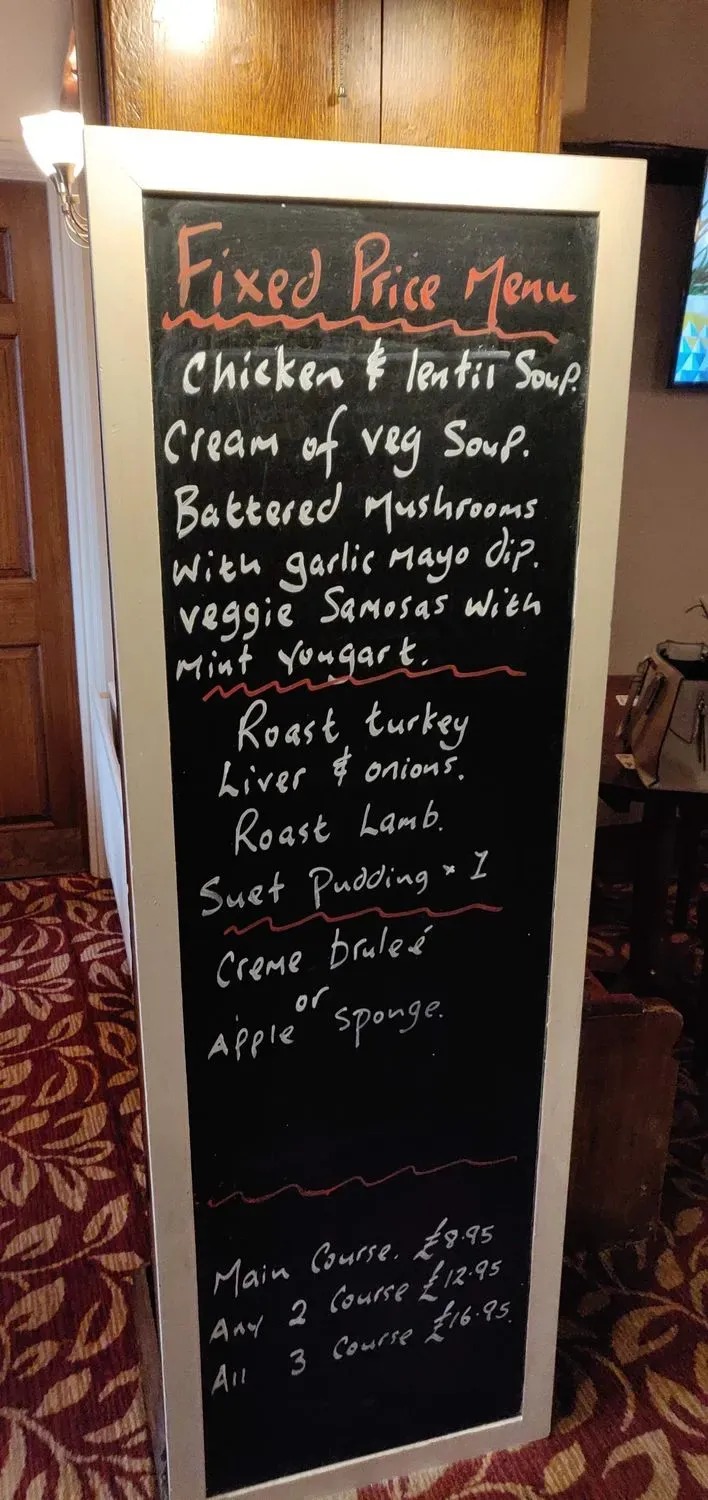 Fixed Price Menu
Chicken & lentil Soup.
Cream of veg Soup.
Battered Mushrooms
with garlic Mayo dip.
veggie Samosas with
Mint Yougart.
Roast turkey
Liver & onions.
Roast Lamb.
Suet Pudding × 1
Creme bruleé
or
Apple sponge.
Main Course. £8.95
Any 2 Course £12.95
All 3 Course £16.95.